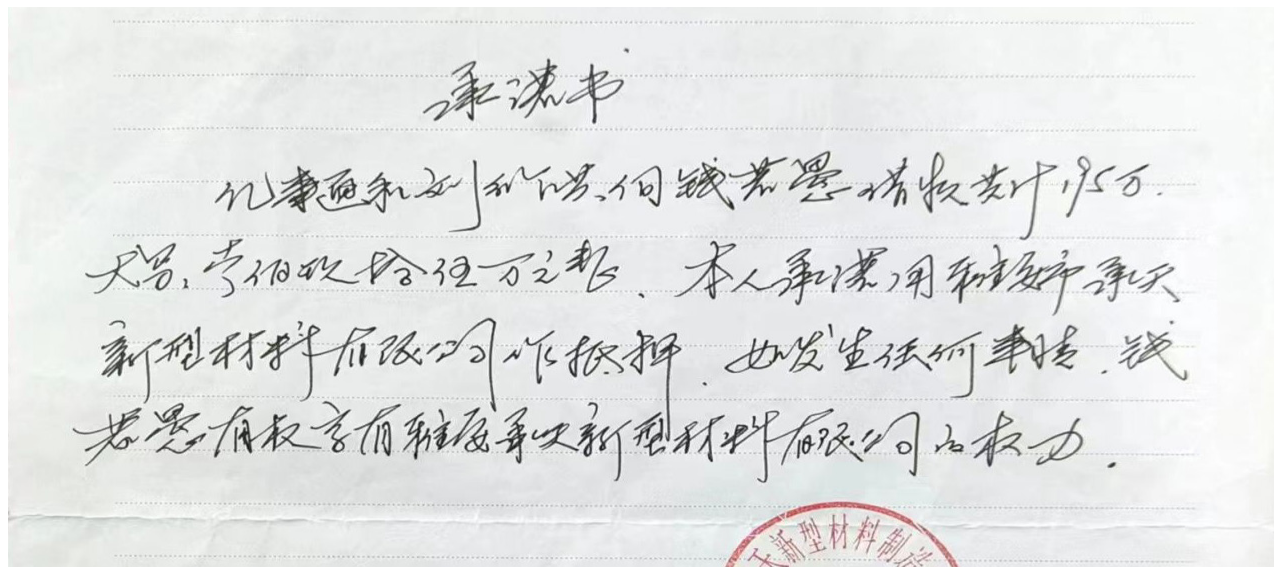 承诺书
纪事通和刘 共向钱若愚借款共计195万.
大写:壹佰玖拾伍万元整、本人承诺用 承天
新型材料有限公司作抵押.如发生任何事情.钱
若愚有权享有 承天新型材料有限公司的权力.
天新型材料制造